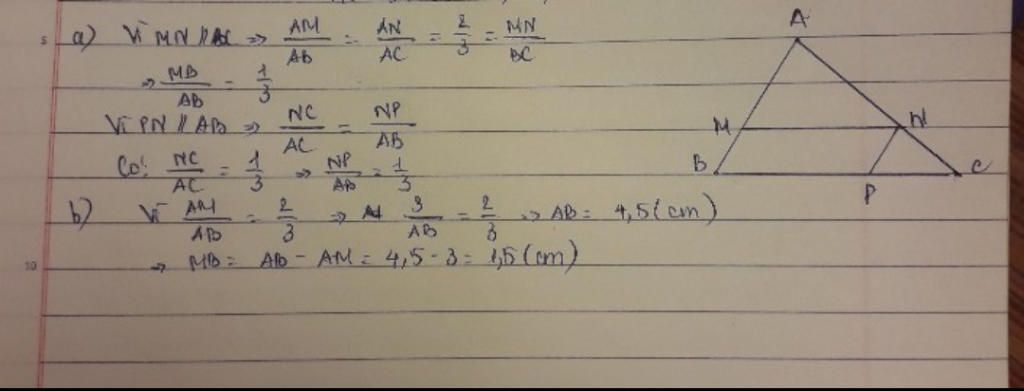 5
a) Vì MN // BC => AM/AB = AN/AC = 2/3 = MN/BC
=> MB/AB = 1/3
Vì PN // AB => NC/AC = NP/AB
Có: NC/AC = 1/3 => NP/AB = 1/3
b) Vì AM/AB = 2/3 => 3/AB = 2/3 => AB = 4,5 (cm)
=> MB = AB - AM = 4,5 - 3 = 1,5 (cm)
10
A
M
N
B
P
C